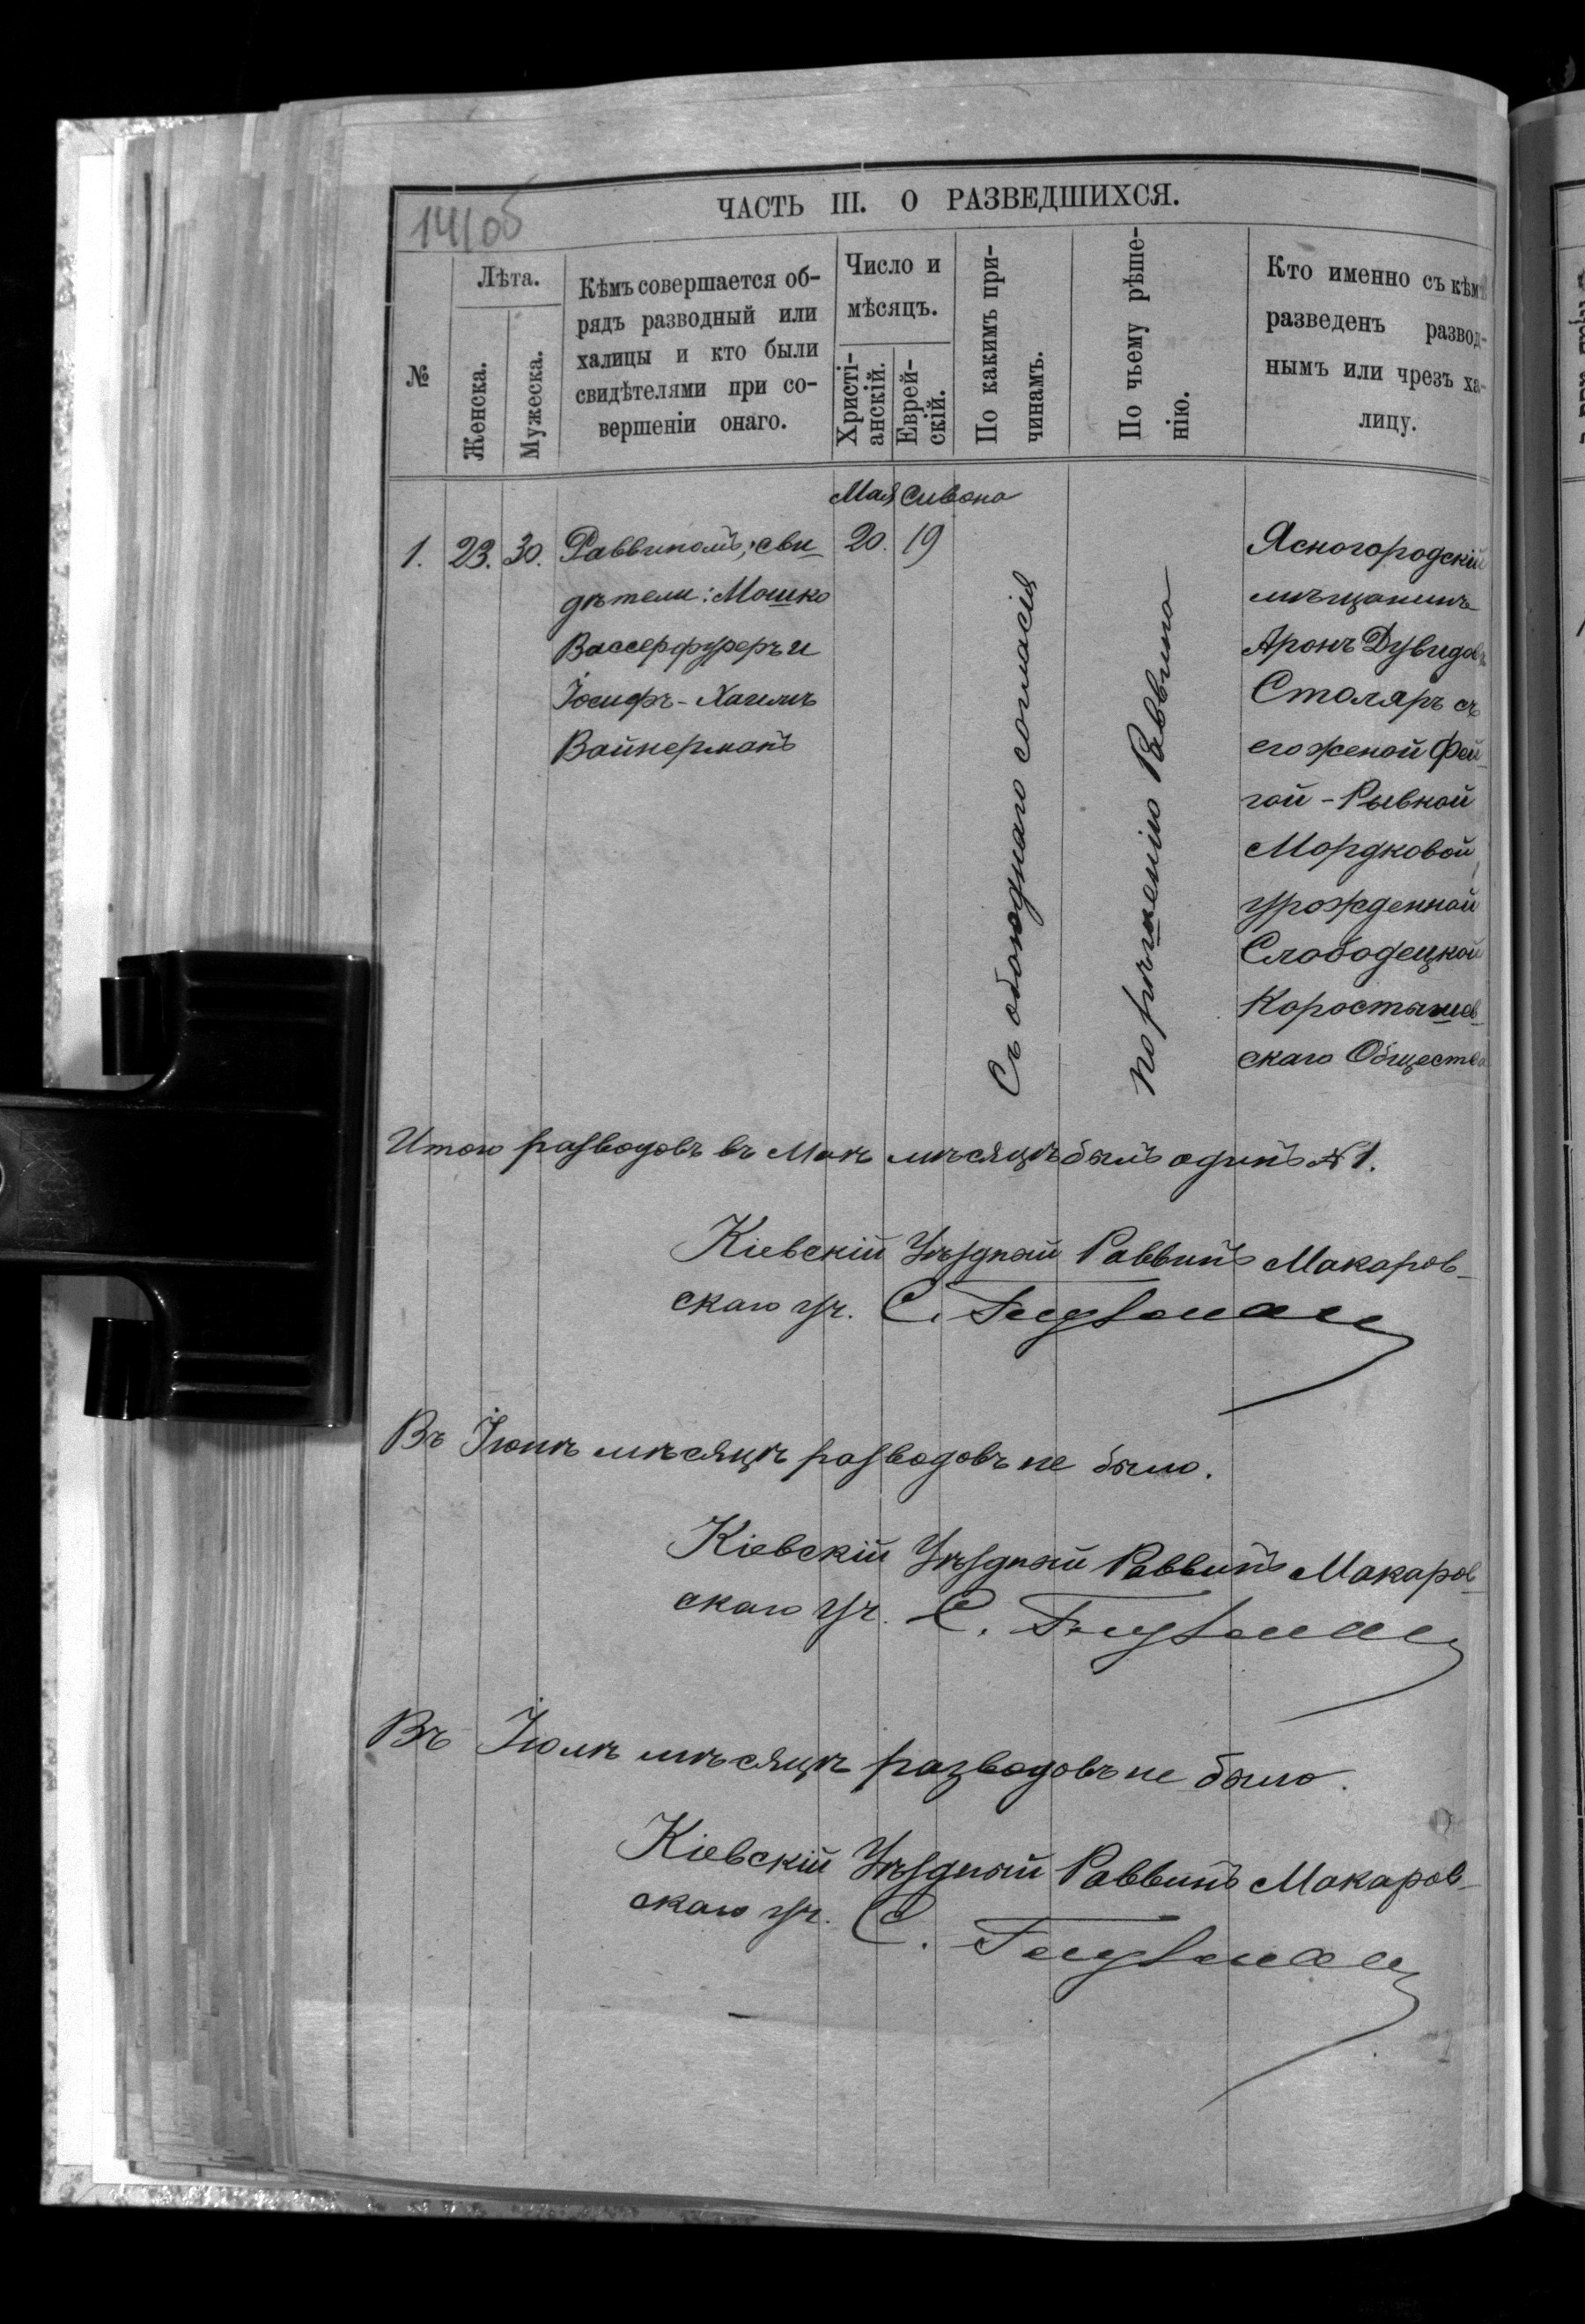 141об
ЧАСТЬ III. О РАЗВЕДШИХСЯ.
№
Лѣта.
Женска.
Мужеска.
Кѣмъ совершается об-
рядъ разводный или
халицы и кто были
свидѣтелями при со-
вершеніи онаго.
Число и
мѣсяцъ.
Христі-
анскій.
Еврей-
скій.
По какимъ при-
чинамъ.
По чьему рѣше-
нію.
Кто именно съ кѣмъ
разведенъ развод-
нымъ или чрезъ ха-
лицу.
Мая Сивона
1. 23. 30. Раввиномъ; сви-
дѣтели: Мошко
Вассерфуреръ и
Іосифъ-Хаимъ
Вайнерманъ
20. 19
Съ обоюднаго согласія
по рѣшенію Раввина
Ясногородскій
мѣщанинъ
Аронъ Дувидовъ
Столяръ съ
его женой Фей-
гой-Рывкой
Мордковой,
урожденной
Слободецкой
Коростышев-
скаго Общества
Итого разводовъ въ Маѣ мѣсяцѣ былъ одинъ № 1.
Кіевскій Уѣздный Раввинъ Макаров-
скаго уч. С.
Въ Іюнѣ мѣсяцѣ разводовъ не было.
Кіевскій Уѣздный Раввинъ Макаров-
скаго уч. С.
Въ Іюлѣ мѣсяцѣ разводовъ не было.
Кіевскій Уѣздный Раввинъ Макаров-
скаго уч. С.